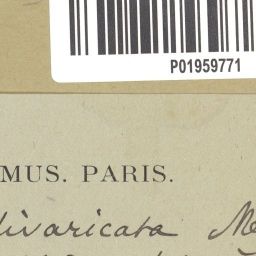 P01959771
MUS. PARIS.
divaricata Me